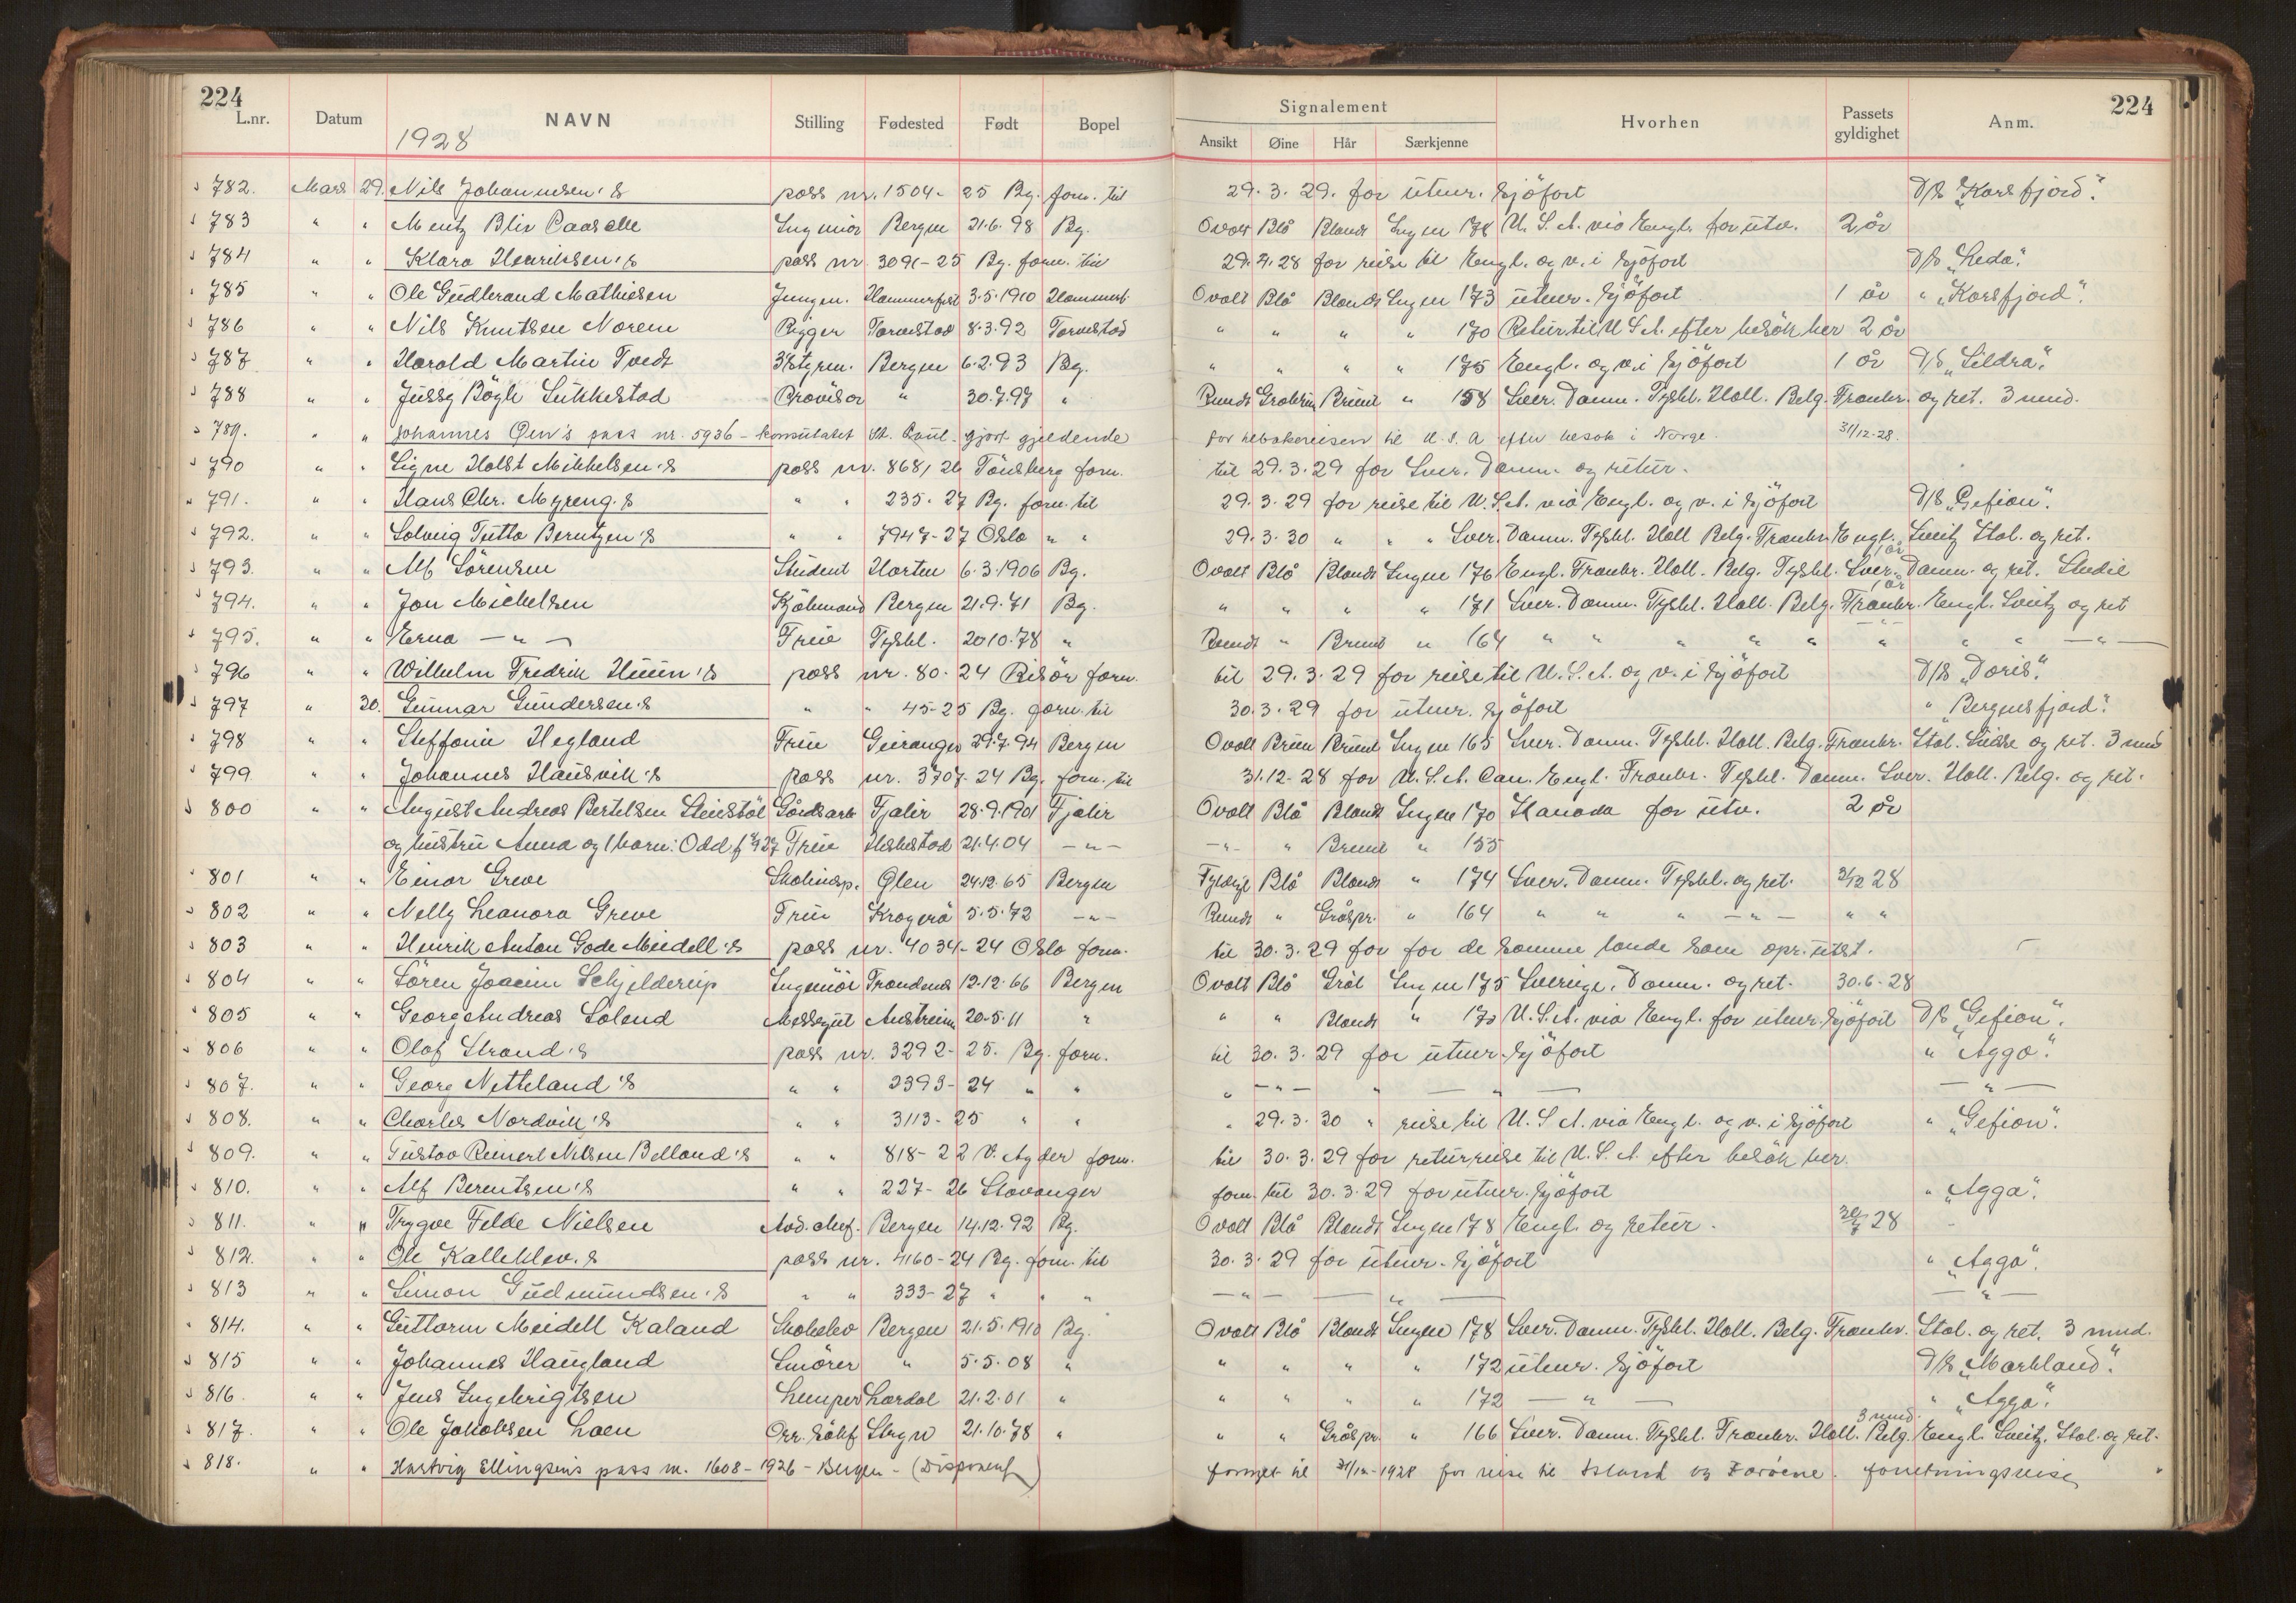 224
224
L.nr. Datum NAVN Stilling Fødested Født Bopel Signalement Hvorhen Passets gyldighet Anm.
1928 Ansikt Øine Hår Særkjenne
782. Mars 29. Nils Johannesen's pass nr. 1504-25 Bg. forn. til 29.3.29. for utenr. sjöfart D/S "Korsfjord".
783 " " Mentz Blix Ingeniör Bergen 21.6.98 Bg. Ovalt Blå Blondt Ingen 178 U.S.A. via Engl. for utv. 2 år
784 " " Klara Henriksen's pass nr. 3091-25 Bg. forn. til 29.4.28 for reise til Engl. og v. i sjöfart D/S "Leda".
785 " " Ole Gudbrand Mathiesen Jungm. Hammerfest 3.5.1910 Hammerf. Ovalt Blå Blondt Ingen 173 utenr. sjöfart 1 år " "Korsfjord".
786 " " Nils Knutsen Norem Rigger Torvestad 8.3.92 Torvestad " " " " 170 Retur til U.S.A. efter besök her 2 år
787 " " Harald Martin Tvedt 3' Styrm. Bergen 6.2.93 Bg. " " " " 175 Engl. og v. i sjöfart 1 år D/S "Sildra".
788 " " Jussy Bögh Lukkestad Provisor " 30.7.97 " Rundt Gråbrun Brunt " 158 Sver. Danm. Tyskl. Holl. Belg. Frankr. og ret. 3 mnd.
789. " " Johannes Qen's pass nr. 5936 - konsulatet St. Paul - gjort gjeldende for tilbakereisen til U.S.A efter besök i Norge. 31/12-28.
790 " " Signe Holst Mikkelsen's pass nr. 868/26 Tönsberg forn. til 29.3.29 for Sver. Danm. og retur.
791. " " Hans Chr. Myreng's " " 235-27 Bg. forn. til 29.3.29 for reise til U.S.A. via Engl. og v. i sjöfart D/S "Gefion".
792. " " Solveig Tutta Berntzen's " " 7947-27 Oslo " " 29.3.30 " " " Sver. Danm. Tyskl. Holl Belg. Frankr. Engl. Sveitz Ital. og ret.
793. " " Alf Sörensen Student Horten 6.3.1906 Bg. Ovalt Blå Blondt Ingen 176 Engl. Frankr. Holl. Belg. Tyskl. Sver. 1 år Danm. og ret. Studie
794. " " Jon Michelsen Kjöbmand Bergen 21.9.71 Bg. " " " " 171 Sver. Danm. Tyskl. Holl. Belg. Frankr. 1 år Engl. Sveitz og ret
795. " " Erna — " — Frue Tyskl. 20.10.78 " Rundt " Brunt " 164 " " " " " " " " — " —
796 " " Wilhelm Fredrik Huun's pass nr. 80-24 Risör forn. til 29.3.29 for reise til U.S.A. og v. i sjöfart D/S "Doris".
797 " 30. Gunnar Gundersen's " " 45-25 Bg. forn. til 30.3.29 for utenr. sjöfart " "Bergensfjord".
798 " " Steffanie Hegland Frue Geiranger 29.7.94 Bergen Ovalt Brun Brunt Ingen 165 Sver. Danm. Tyskl. Holl. Belg. Frankr. Ital. og ret. 3 mnd
799 " " Johannes Hausvik's pass nr. 3707-24 Bg. forn. til 31.12-28 for U.S.A. Can. Engl. Frankr. Tyskl. Danm. Sver. Holl. Belg. og ret.
800 " " August Andreas Bertelsen Steinstöl Gårdsarb Fjaler 28.9.1901 Fjaler Ovalt Blå Blondt Ingen 170 Kanada for utv. 2 år
og hustru Anna og 1 barn: Odd Frue Askestad 21.4.04 — " — — " — " Brunt " 155
801 " " Einar Greve Skoleinsp. Ølen 24.12.65 Bergen Fyldigt Blå Blondt " 174 Sver. Danm. Tyskl. og ret. 31/12 28
802 " " Nelly Leonora Greve Frue Kragerö 5.5.72 — " — Rundt " Gråspr. " 164 " " " — " — " "
803 " " Henrik Anton Gade Meidell's pass nr. 4034-24 Oslo forn. til 30.3.29 for for de samme lande som opr. utst.
804 " " Sören Joacim Schjelderup Ingeniör Trondenes 12.12.66 Bergen Ovalt Blå Grått Ingen 175 Sverige. Danm. og ret. 30.6-28
805 " " Georg Andreas Solend Messegut Austrheim 20.5.11 " " " Blondt " U.S.A. via Engl. for utenr. sjöfart D/S "Gefion".
806 " " Olaf Strand's pass nr. 3292-25. Bg. forn. til 30.3.29 for utenr. sjöfart " "Agga".
807. " " Georg Netteland's " " 2393-24 " " " — " — " — " — — " —
808. " " Charles Nordvik's " " 3113-25 " " " 29.3.30 " reise til U.S.A. via Engl. og v. i sjöfart " "Gefion".
809. " " Gustav Reinert Nilsen Belland's " " 818-22 V. Agder forn. til 30.3.29 for returreise til U.S.A. efter besök her.
810. " " Alf Berentsen's " " 227-26 Stavanger forn. til 30.3.29 for utenr. sjöfart " "Agga".
811. " " Trygve Felde Nielsen Avd. chef. Bergen 14.12.92 Bg. Ovalt Blå Blondt Ingen 178 Engl. og retur. 28
812. " " Ole Kalleklev's pass nr. 4160-24 Bg. forn. til 30.3.29 for utenr. sjöfart " "Agga".
813 " " Simon Gudmundsen's " " 333-27 " " " — " — — " — — " —
814. " " Guttorm Meidell Kaland Skoleelev Bergen 21.5.1910 Bg. Ovalt Blå Blondt Ingen 178 Sver. Danm. Tyskl. Holl. Belg. Frankr. Ital. og ret. 3 mnd.
815 " " Johannes Haugland Smörer " 5.5.08 " " " " " 172 utenr. sjöfart D/S "Markland".
816. " " Jens Ingebrigtsen Lemper Lærdal 21.2.01 " " " " " 172 — " — " "Agga".
817. " " Ole Jakobsen Loen Stryn 21.10.78 " " " Gråspr " 166 Sver. Danm. Tyskl. Frankr. Holl. Belg. 3 mnd Engl. Sveitz. Ital. og ret.
818. " " Hartvig Ellingsen's pass nr. 1608-1926 - Bergen - (Disponent) fornyet til 31/12-1928 for reise til Island og Færöene. forretningsreise